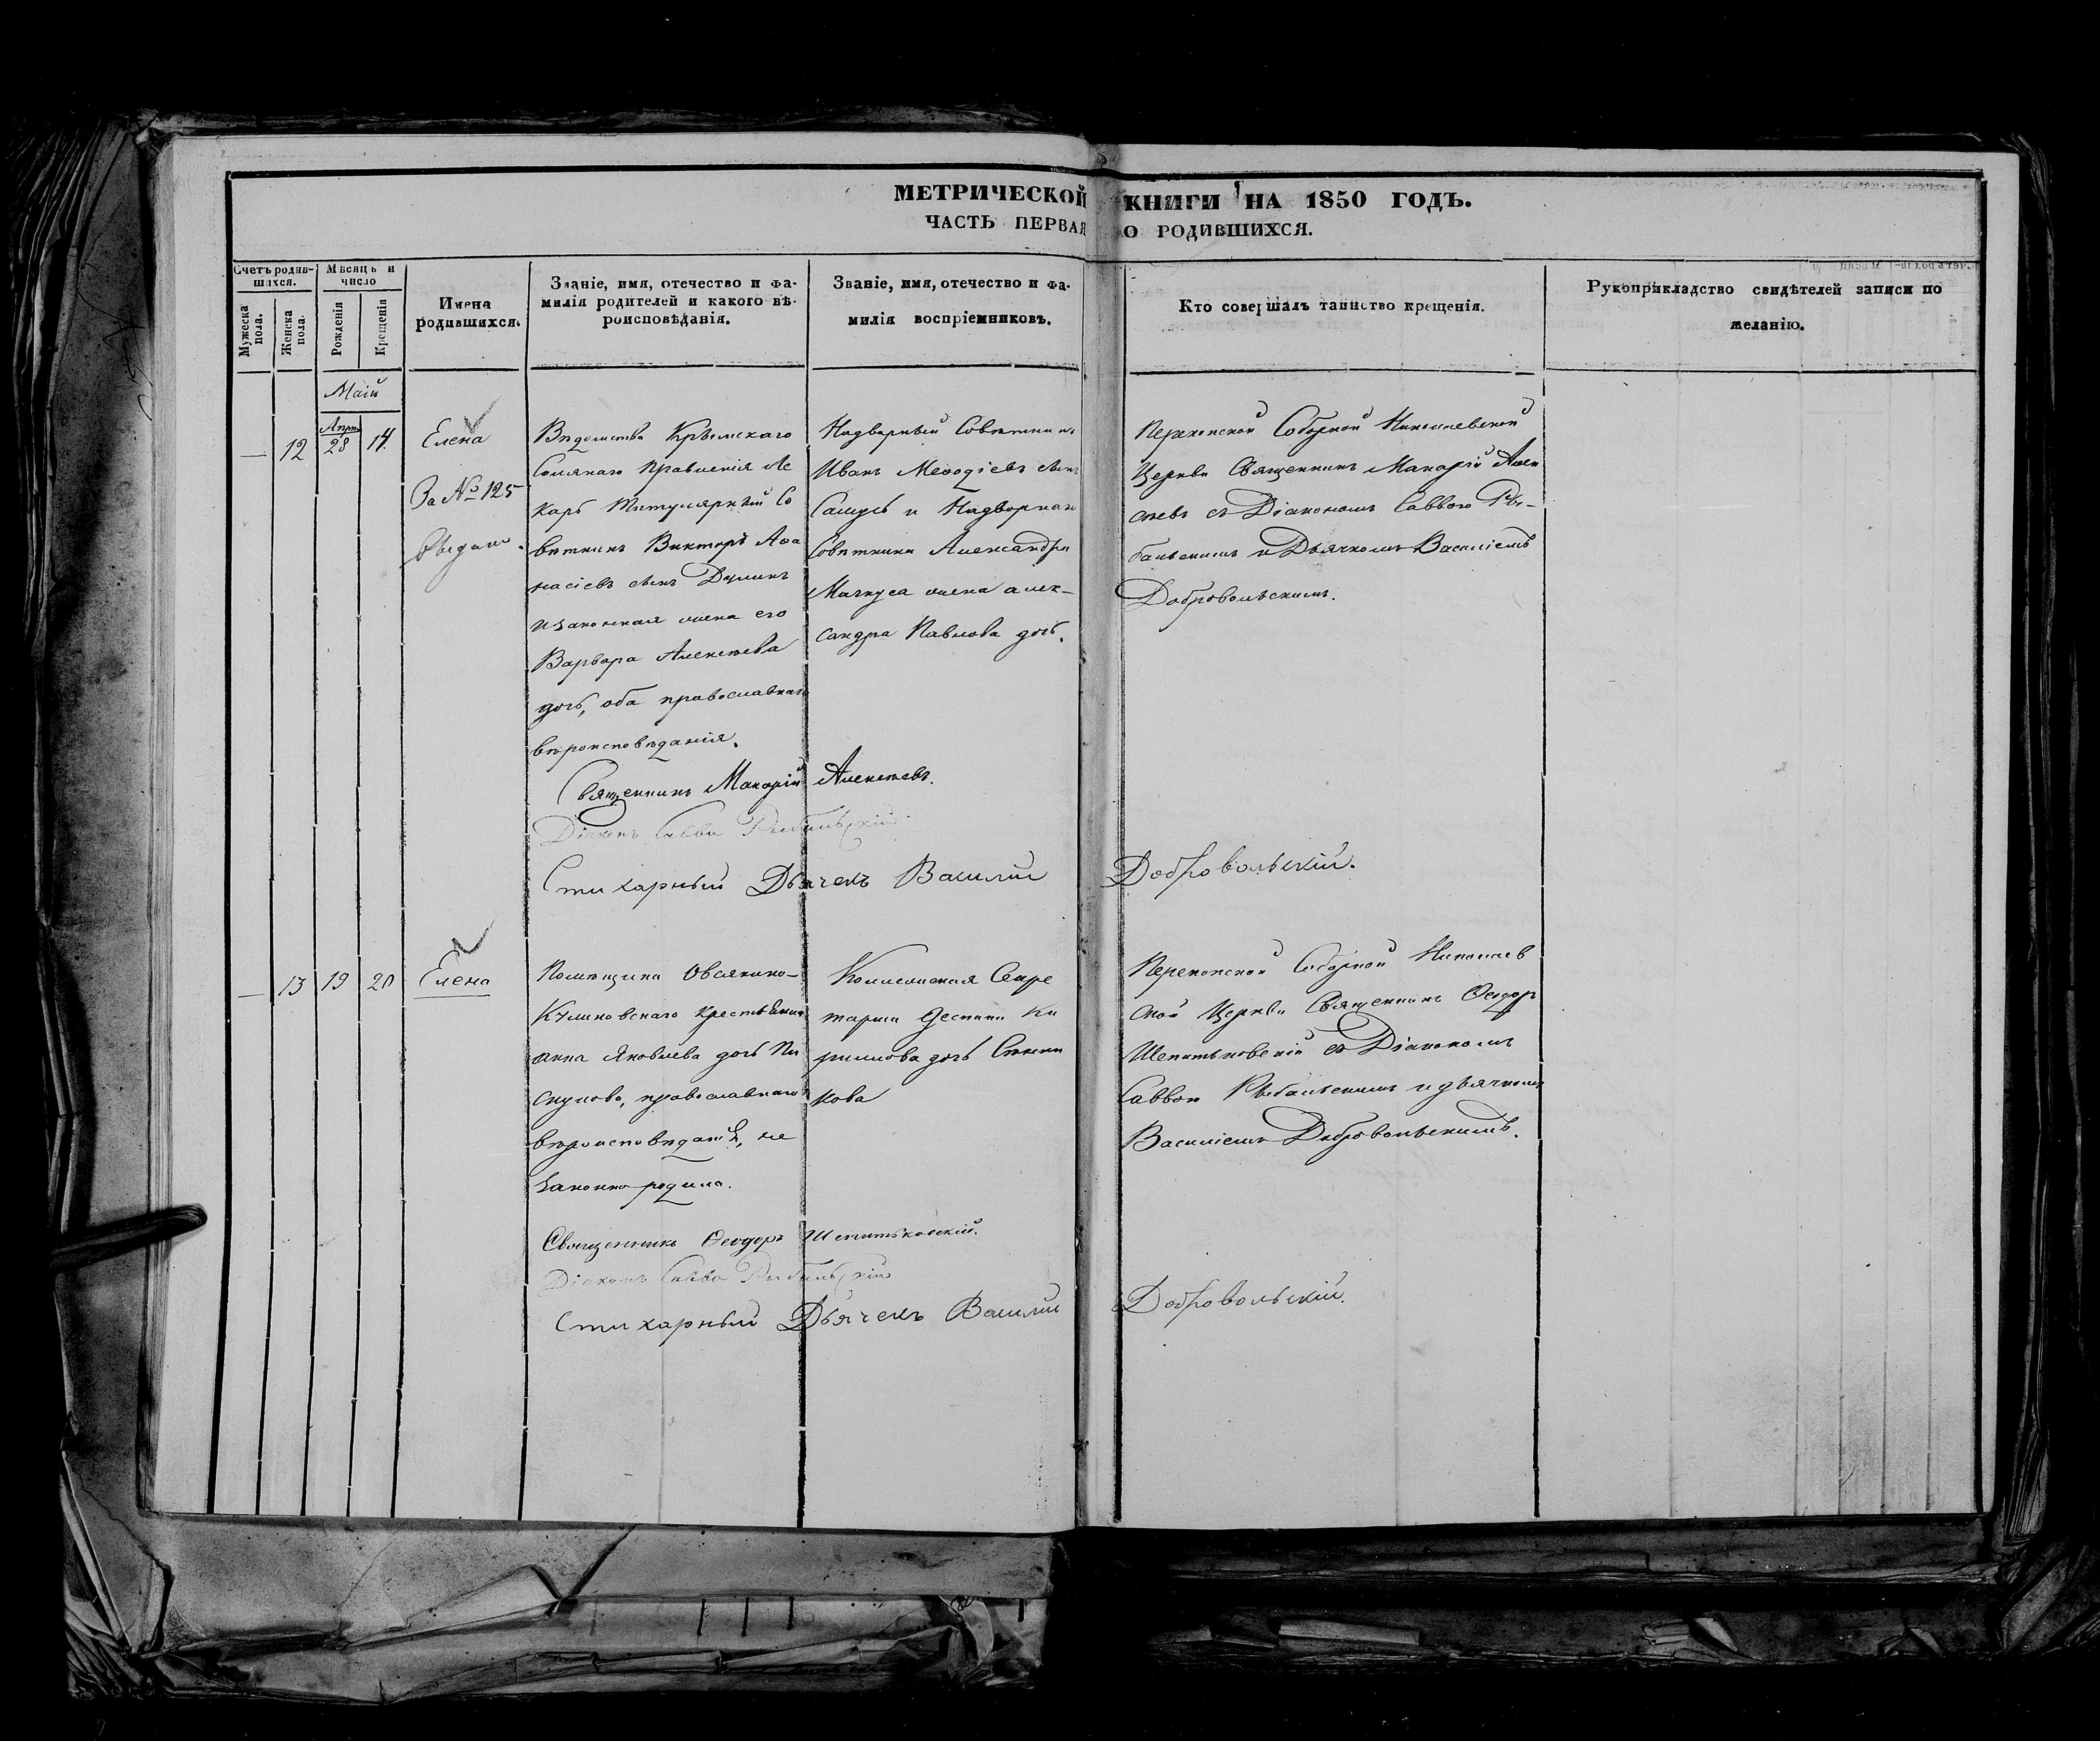 МЕТРИЧЕСКОЙ КНИГИ НА 1850 ГОДЪ.
ЧАСТЬ ПЕРВАЯ О РОДИВШИХСЯ.
Счетъ родив-
шихся.
Мужеска
пола.
Женска
пола.
Мѣсяцъ и
число
Рожденія
Крещенія
Имена
родившихся.
Званіе, имя, отечество и фа-
милія родителей и какого вѣ-
роисповѣданія.
Званіе, имя, отечество и фа-
милія воспріемниковъ.
Кто совершалъ таинство крещенія.
Рукоприкладство свидѣтелей записи по
желанію.
Маій
—
12
Апрѣ
28
14.
Елена
За № 125
выдано.
Вѣдомства Крымскаго
Солянаго Правленія Ле
карь Титулярный Со
вѣтникъ Викторъ Аѳа
насіевъ сынъ
изаконная жена его
Варвара Алексѣева
дочь, оба православнаго
вѣроисповѣданія.
Надворный Совѣтникъ
Иванъ Меѳодіевъ сынъ
Самусь и Надворнаго
Совѣтника Александра
жена алек-
сандра Павлова дочь.
Перекопской Соборной Николаевской
Церкви Священникъ Макарій Алек
сѣевъ съ Діакономъ Саввою Ры-
бальскимъ и Дьячкомъ Василіемъ
Добровольскимъ.
Священникъ Макарій Алексѣевъ.
Діаконъ Савва Рыбальскій
Стихарный Дьячекъ Василій Добровольскій.
—
13
19
20
Елена
Помѣщика Овсянико-
Куликовскаго Крестьянка
анна Яковлева дочь Пи
скунова, православнаго
вѣроисповѣданія, не
законно родила.
Коллежская Секре
тарша Деспина Ки
рилова дочь
кова
Перекопской Соборной Николаев
ской Церкви Священникъ Ѳеодоръ
Шепитьковскій съ Діакономъ
Саввою Рыбальскимъ и дьячкомъ
Василіемъ Добровольскимъ.
Священникъ Ѳеодоръ Шепитьковскій.
Діаконъ Савва Рыбальскій
Стихарный Дьячекъ Василій Добровольскій.